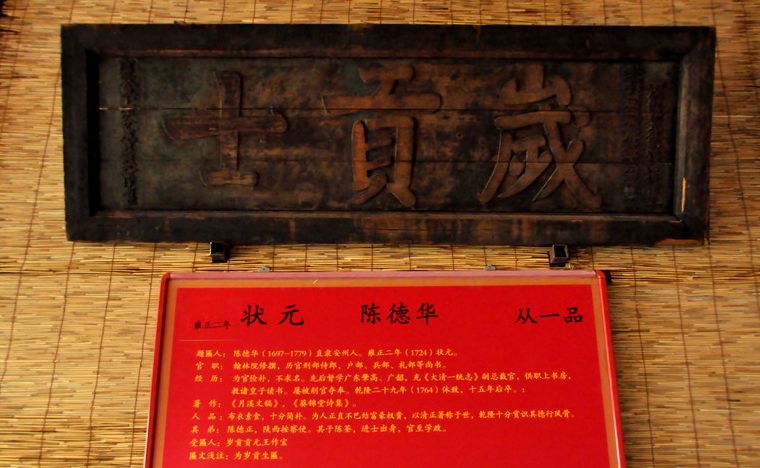 歲貢士
雍正二年 状元 陈德华 从一品
题匾人：陈德华（1697-1779）直隶安州人。雍正二年（1724）状元。
官 职：翰林院修撰，历官刑部侍郎，户部、兵部、礼部等尚书。
经 历：为官俭朴，不求名。先后督学广东肇高、广韶，充《大清一统志》副总裁官，供职上书房，
教诸皇子读书。屡被削官夺奉。乾隆二十九年（1764）休致，十五年后卒。
著 作：《月溪文稿》、《葵锦堂诗集》。
人 品：布衣素食，十分简朴。为人正直不巴结富豪权贵，以清正著称于世，乾隆十分赏识其德行风骨。
其 弟：陈德正，陕西按察使。其子陈筌，进士出身，官至学政。
受匾人：岁贡贡元王作宝
匾文浅注：为岁贡生匾。